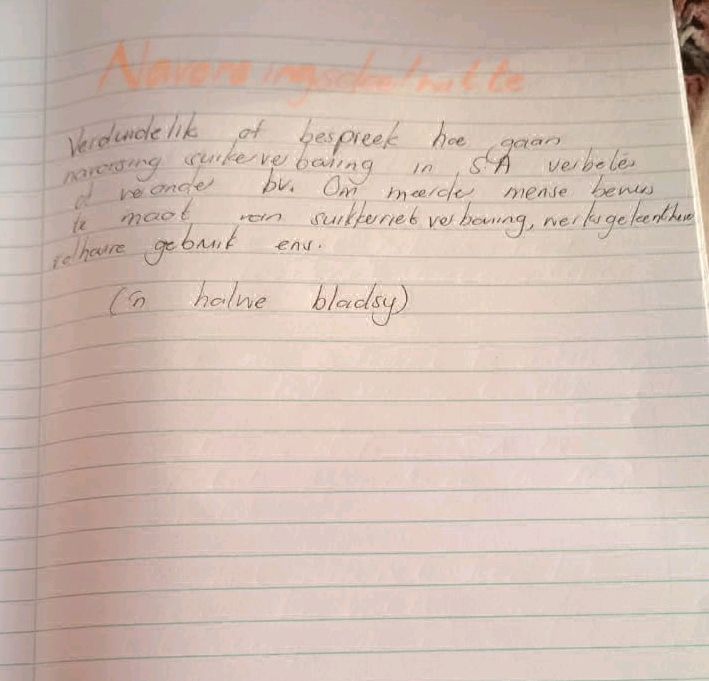 Navorsingsdoelwitte
Verduidelik of bespreek hoe gaan
navorsing suikerverbouing in SA verbeter
of verander bv. Om meerder mense bewus
te maak van suikkerriet verbouing, werksgeleenthede
gebruik ens.
('n halwe bladsy)